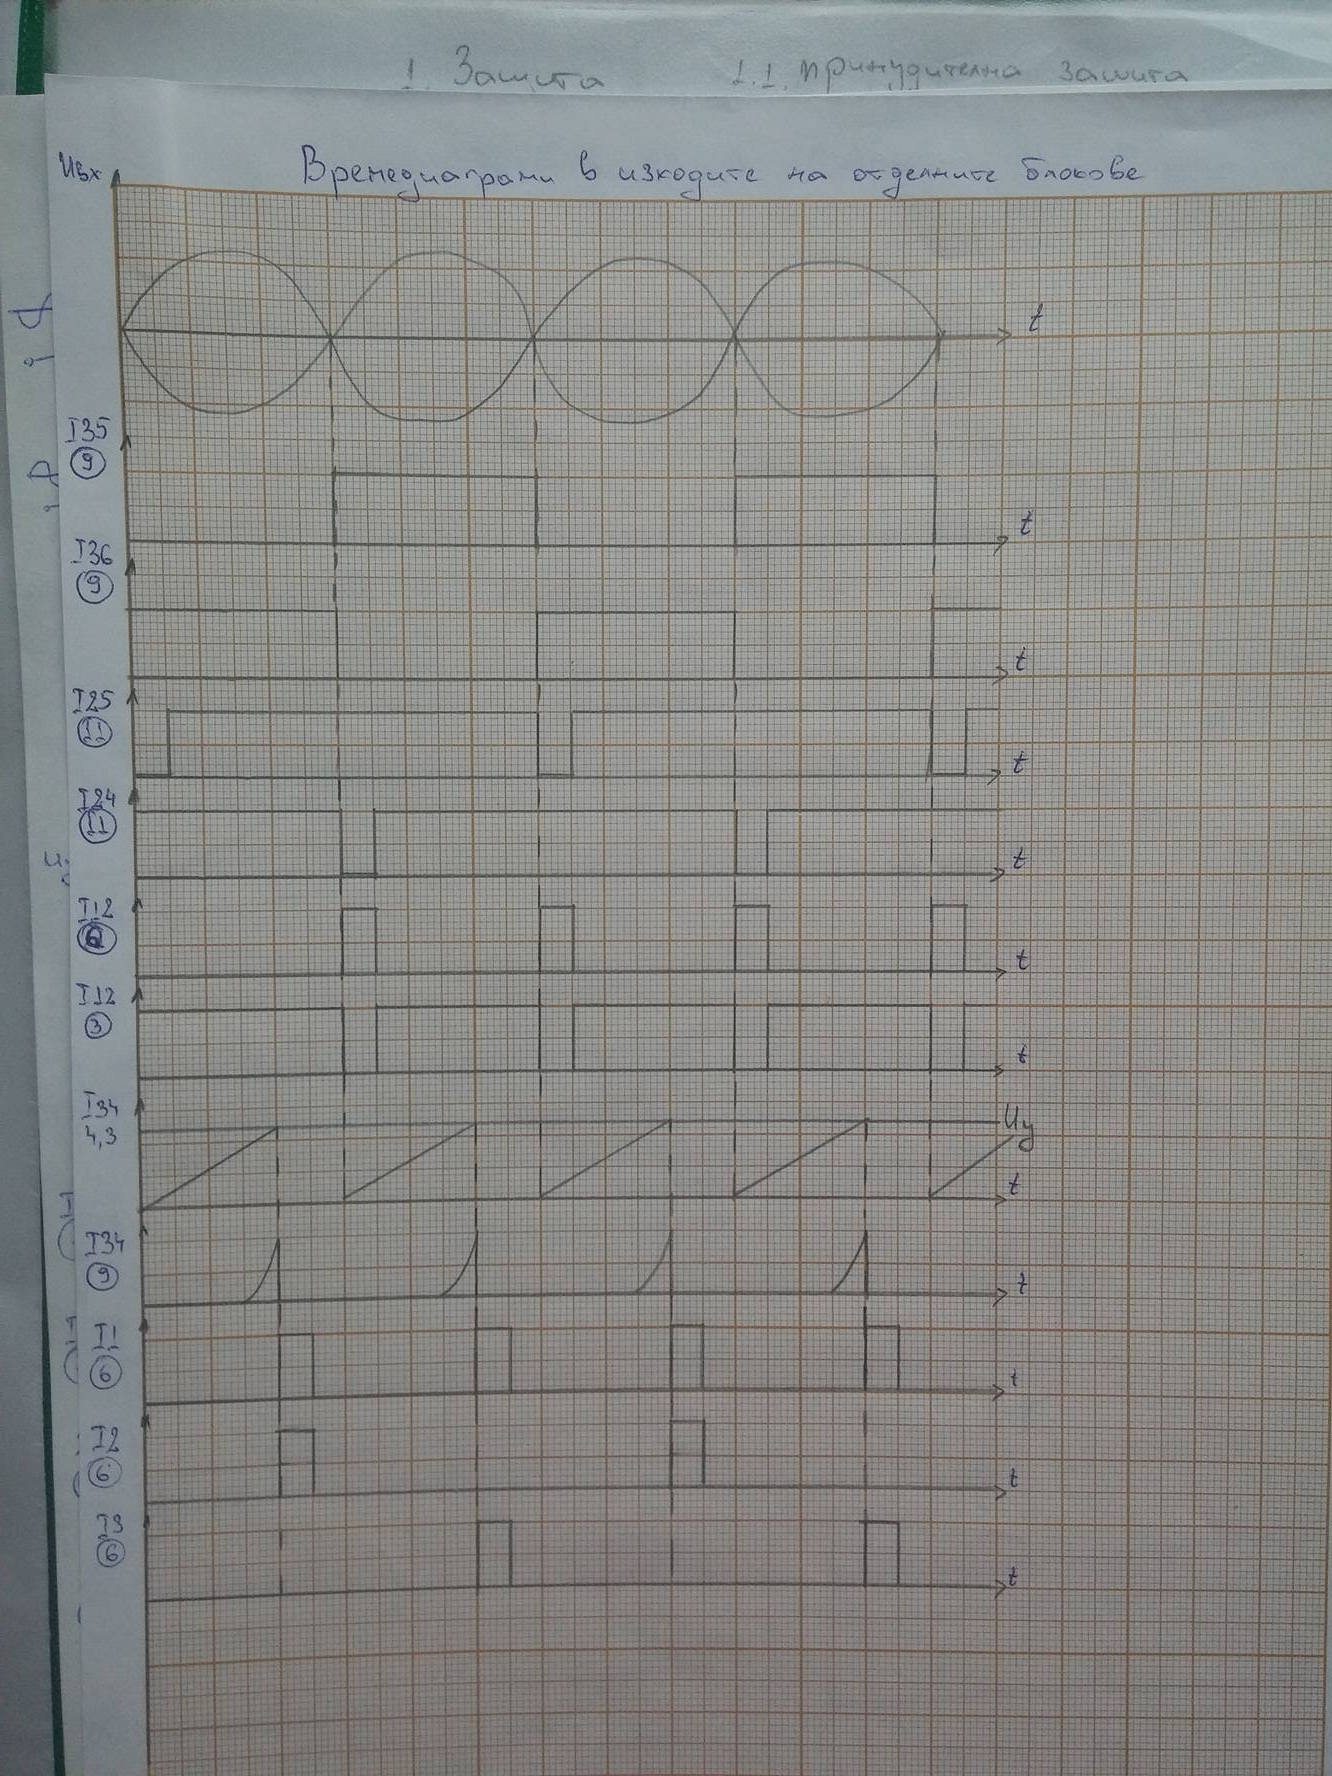 1. Защита 1.1. принудителна защита
Времедиаграми в изходите на отделните блокове
Uвх
t
I35
9
t
I36
9
t
I25
11
t
I24
11
t
I12
t
I12
3
t
I34
4,3
Uy
t
I34
9
t
I1
6
t
I2
6
t
I3
6
t